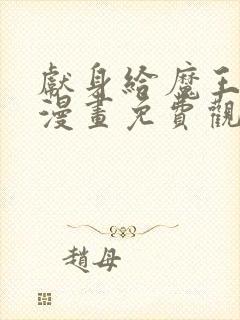 獻身給魔王
漫畫免費觀
趙母